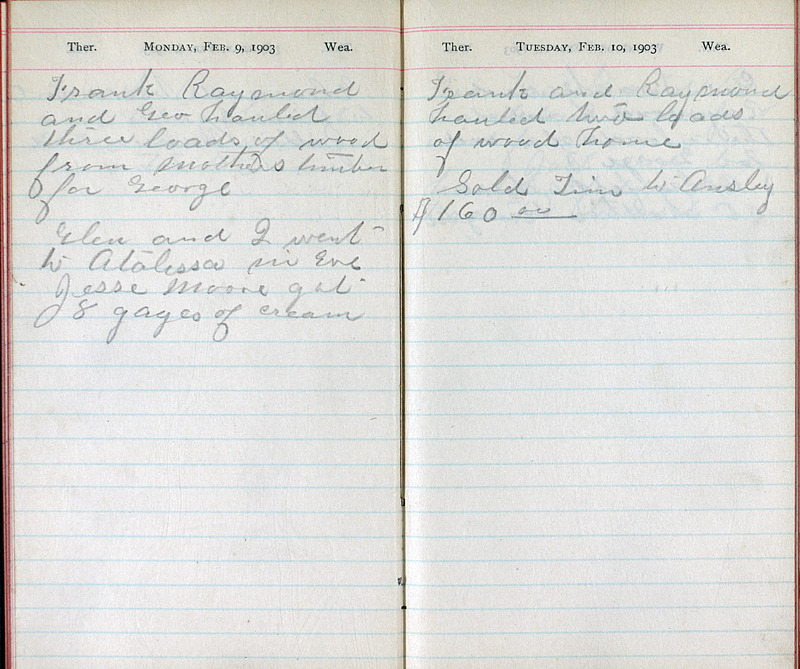 Ther. Monday, Feb. 9, 1903 Wea.
Frank Raymond
and Geo hauled
three loads of wood
from mothers timber
for George
Glen and I went
to Atalissa in Eve
Jesse Moore got
8 gages of cream
Ther. Tuesday, Feb. 10, 1903 Wea.
Frank and Raymond
hauled two loads
of wood home
Sold Tim to Ansley
$160 00